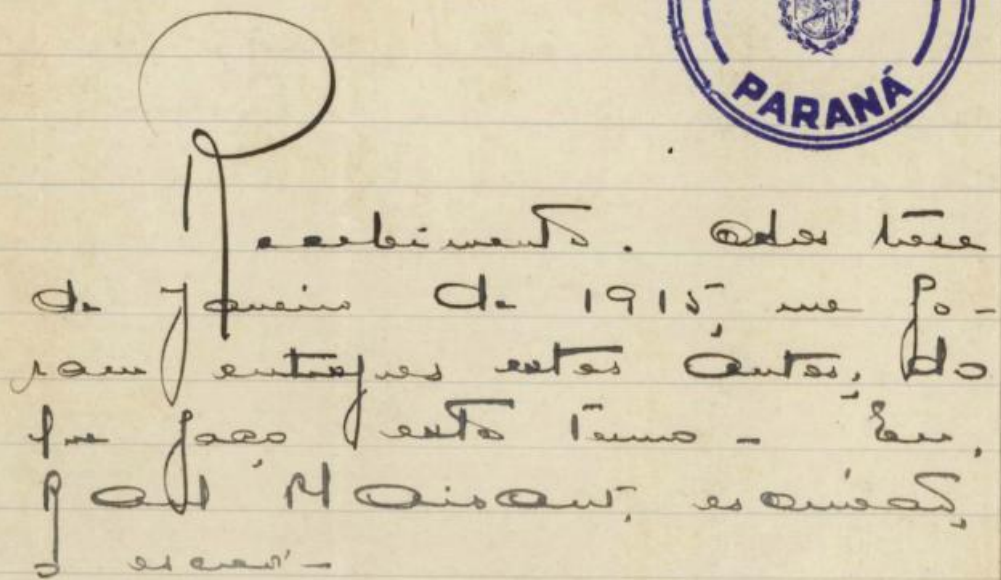 PARANÁ
Recebimento. Aos treze
de Janeiro de 1915, me fo-
ram entregues estes autos, do
que faço este termo - Eu,
Raul Plaisant, escrivão,
o escrevi -